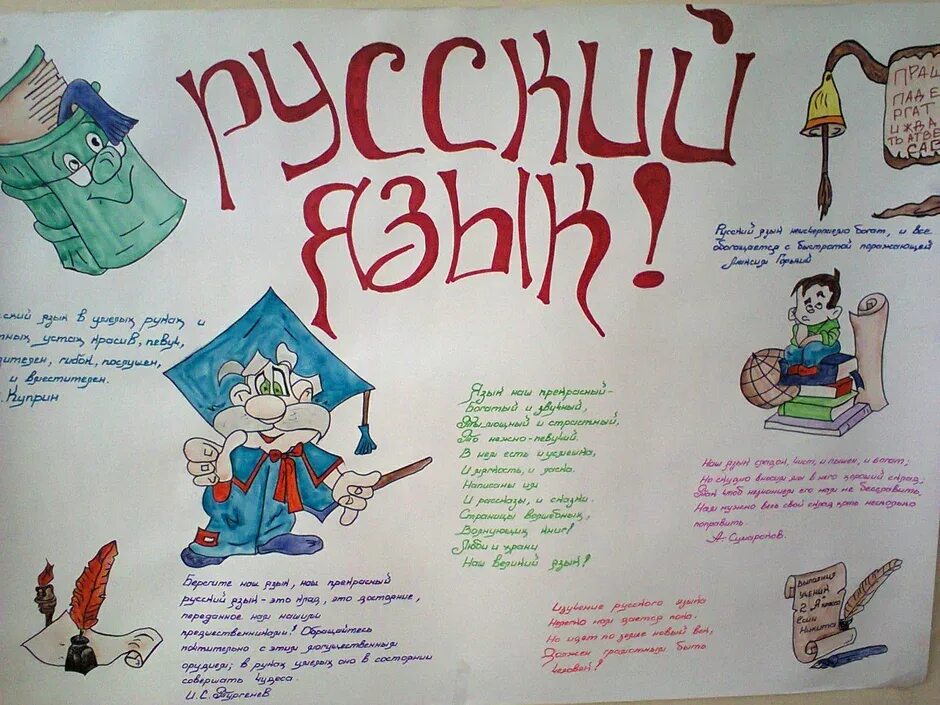 РУССКИЙ
ЯЗЫК!
ПРАШ
ПАДЕ
РГАТ
И ЖДА
ТЬ АТВЕ
САВ
Русский язык неисчерпаемо богат, и все
обогащается с быстратой поражающей
Максим Горький
ский язык в умелых руках и
тных устах красив, певуч,
зителен, гибок, послушен,
и вместителен.
. Куприн
Язык наш прекрасный-
Богатый и звучный,
и страстный,
То нежно-певучий.
В нем есть и усмешка,
И мягкость, и ласка.
Написаны им
И рассказы, и сказки.
Страницы волшебных,
Волнующих книг!
Люби и храни
Наш великий язык!
Наш язык сладок, чист, и пышен, и богат;
Но скудно вносим мы в него хороший склад,
Так чтоб незнанием его нам не бесславить,
Нам нужно весь свой склад хоть несколько
поправить.
А. Сумароков.
Берегите наш язык, наш прекрасный
русский язык - это клад, это достояние,
переданное нам нашими
предшественниками! Обращайтесь
почтительно с этим могущественным
орудием; в руках умелых оно в состоянии
совершать чудеса.
И.С.Тургенев
Изучение русского языка
Нелегко нам дается пока.
Но идет по земле новый век,
Должен грамотным быть
человек!
Выполнил
ученик
2 "А" класса
Есин
Никита